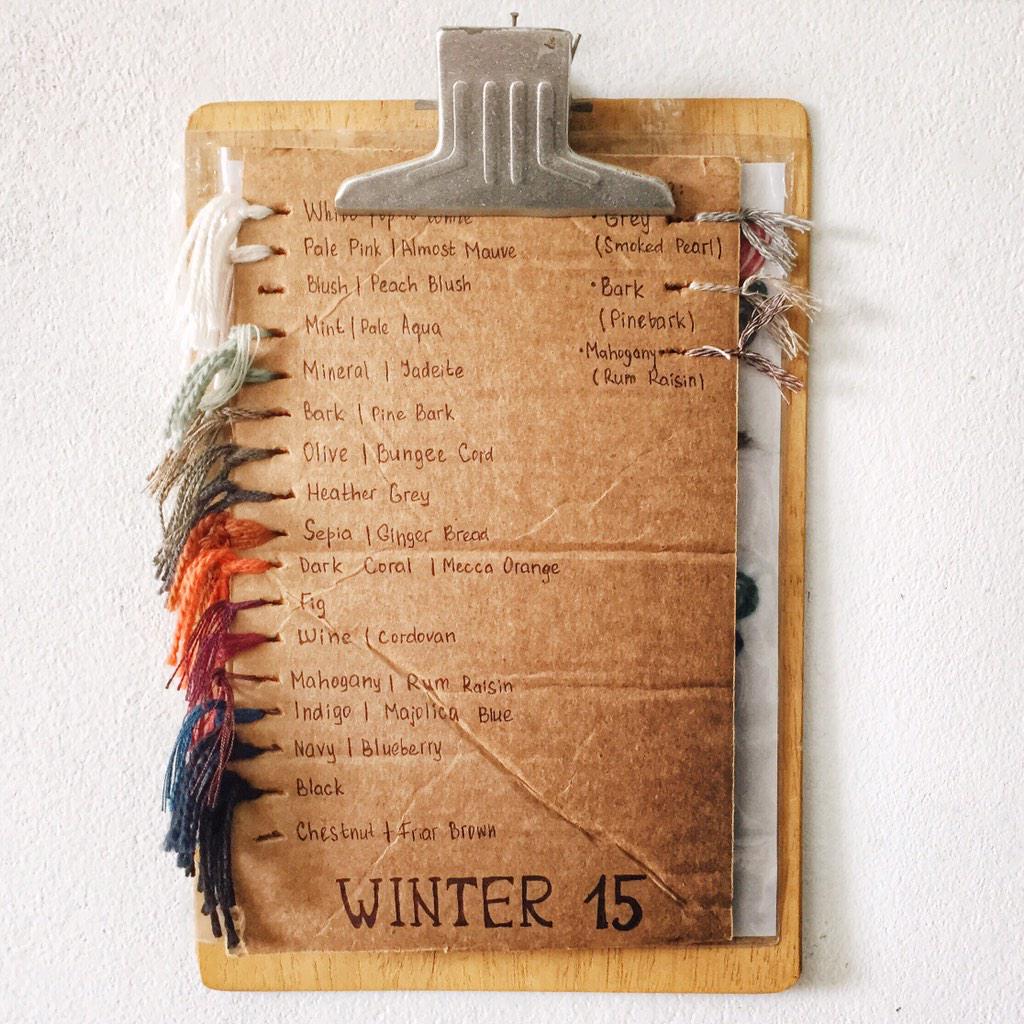 White
Pale Pink | Almost Mauve
Blush | Peach Blush
Mint | Pale Aqua
Mineral | Jadeite
Bark | Pine Bark
Olive | Bungee Cord
Heather Grey
Sepia | Ginger Bread
Dark Coral | Mecca Orange
Fig
Wine | Cordovan
Mahogany | Rum Raisin
Indigo | Majolica Blue
Navy | Blueberry
Black
Chestnut | Friar Brown
• Grey
(Smoked Pearl)
• Bark
(Pinebark)
• Mahogany
(Rum Raisin)
WINTER 15